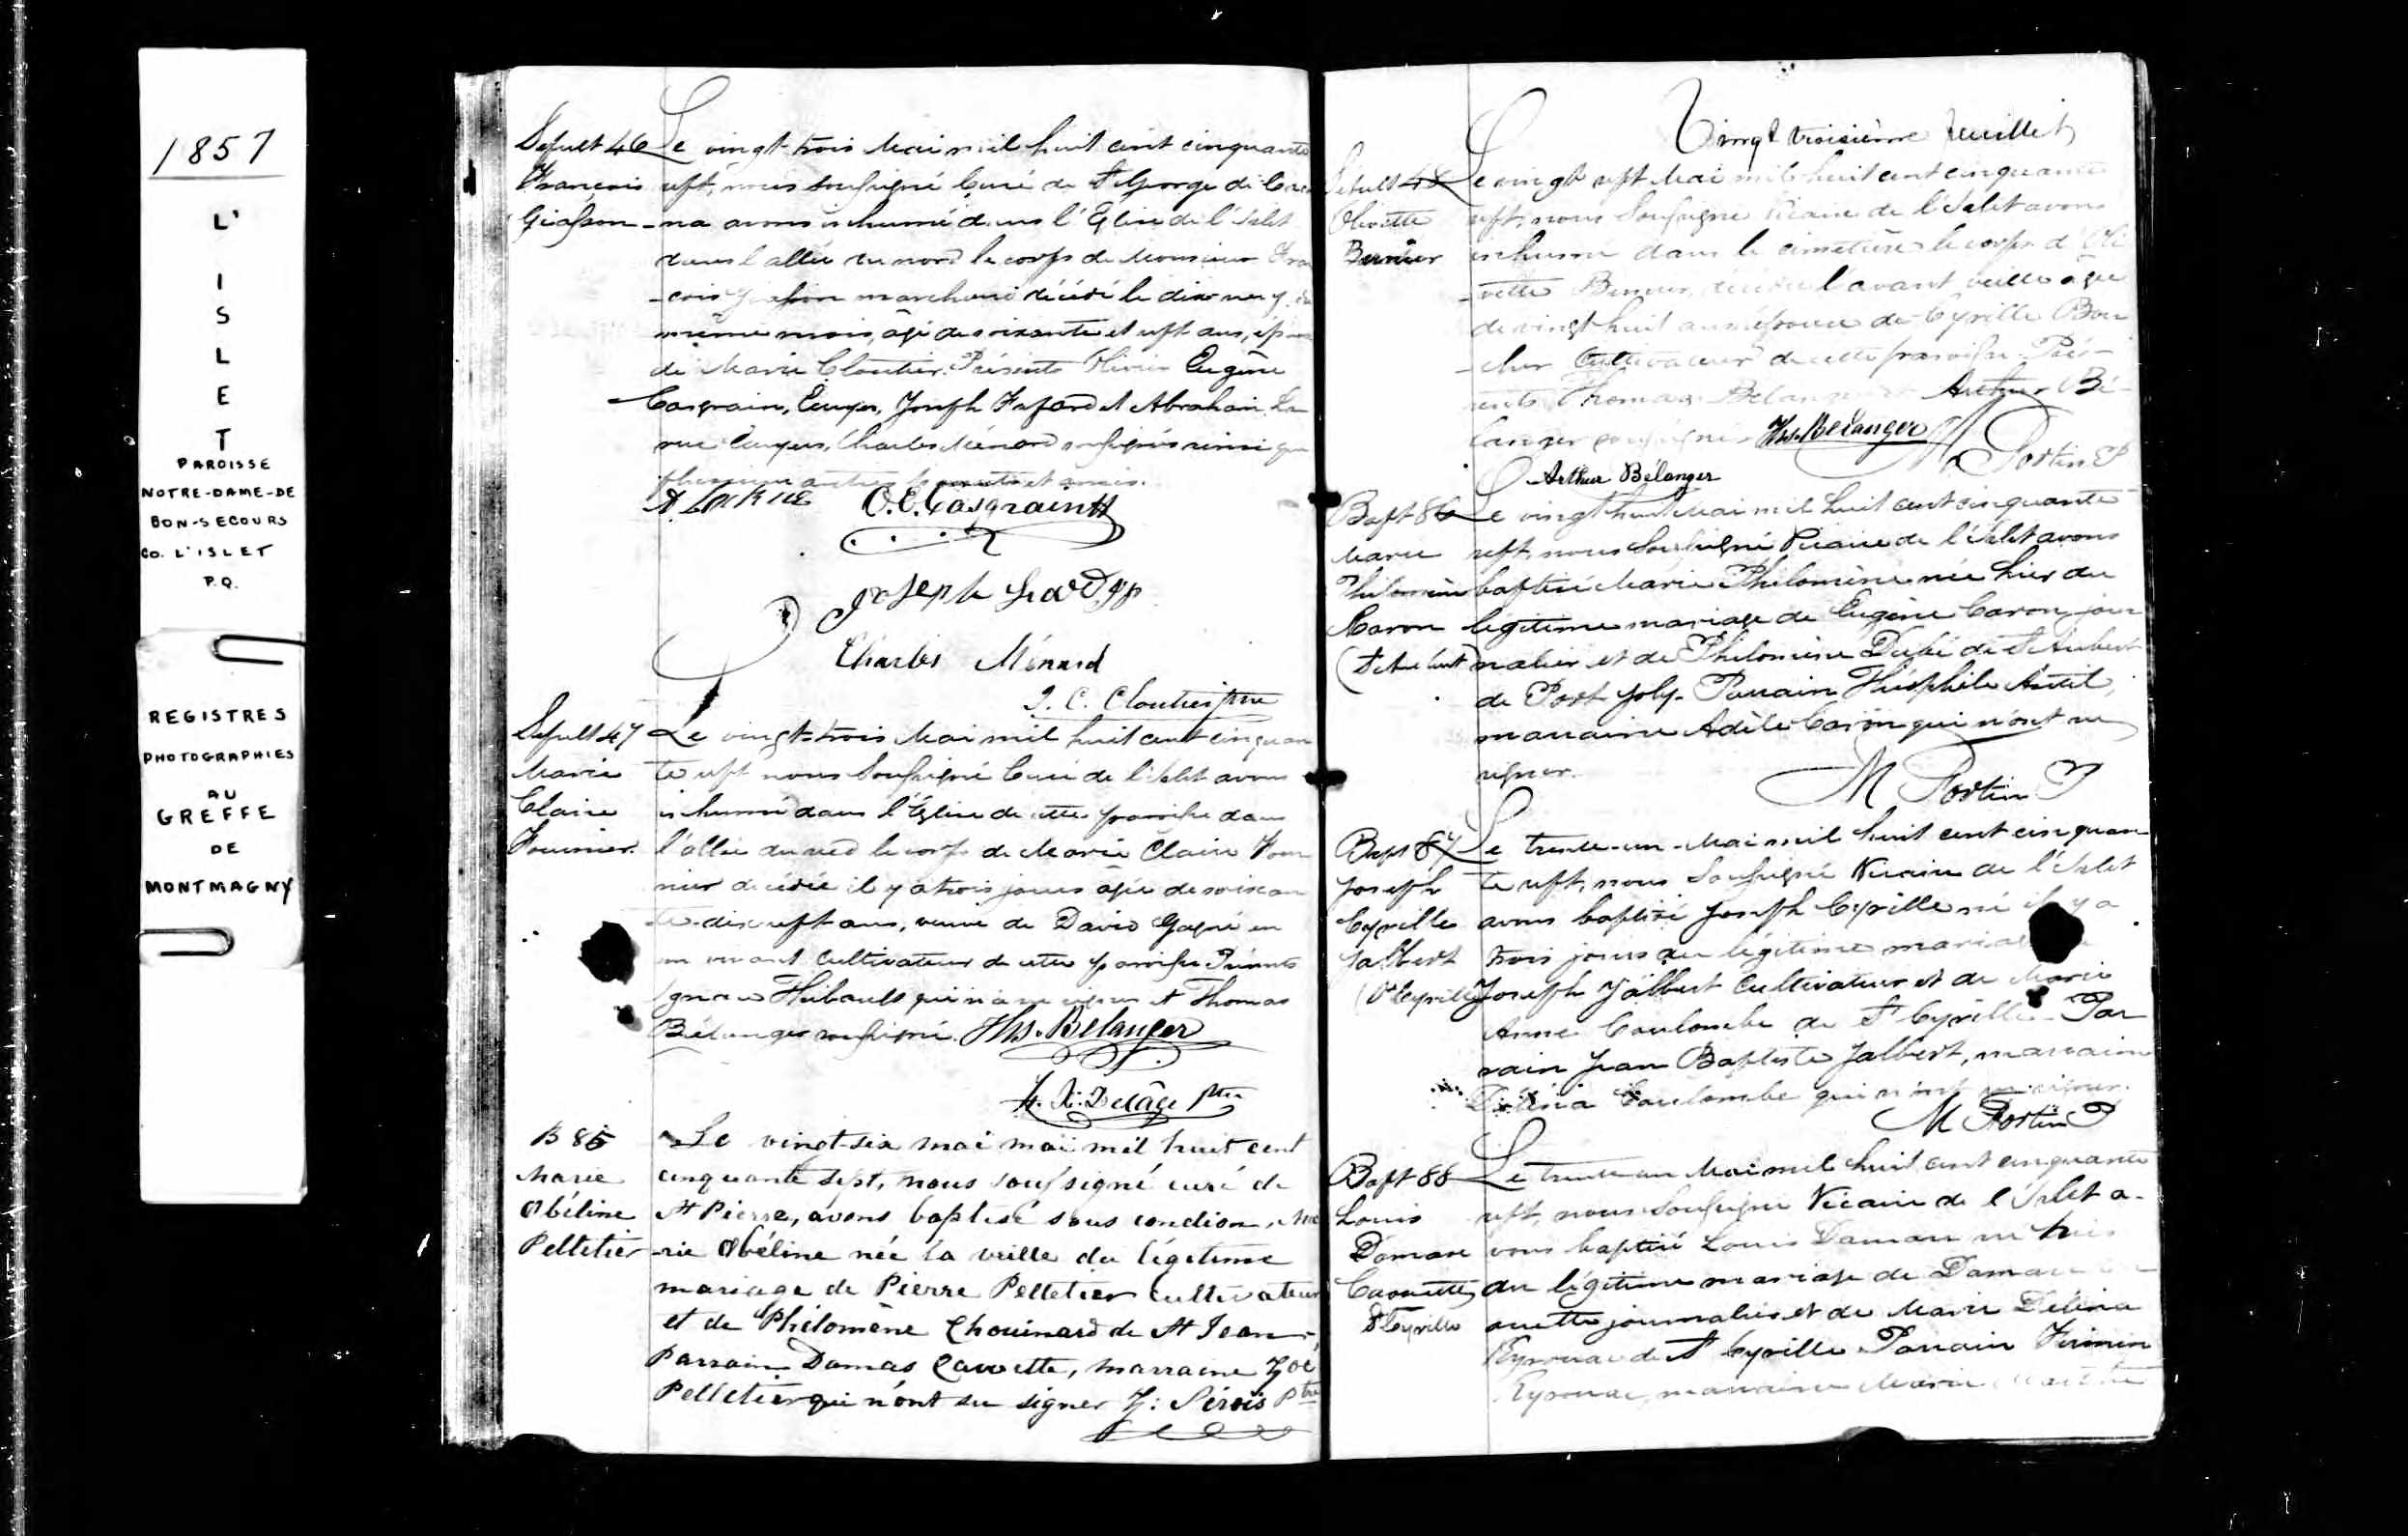 1857
L'
I
S
L
E
T
PAROISSE
NOTRE-DAME-DE
BON-SECOURS
CO. L'ISLET
P.Q.
REGISTRES
PHOTOGRAPHIES
AU
GREFFE
DE
MONTMAGNY
Sepult 46
François
Giasson
Le vingt-trois Mai mil huit cent cinquante
sept, nous soussigné Curé de St George de
-na avons inhumé dans l'Eglise de l'Islet
dans l'allée du nord le corps de Monsieur Fran
-cois Giasson marchand décédé le dix neuf du
même mois, âgé de soixante et sept ans, époux
de Marie Cloutier. Présents Olivier Eugène
Casgrain, Ecuyer, Joseph Fafard et Abraham La
rue Ecuyers, Charles Ménard soussignés ainsi que
plusieurs autres parents et amis.
A Larue O. E. Casgrain
Joseph
Charles Ménard
J. C. Cloutier ptre
Sepult 47
Marie
Claire
Fournier
Le vingt-trois Mai mil huit cent cinquan
te sept nous soussigné Curé de l'Islet avons
inhumé dans l'Eglise de cette paroisse dans
l'allée du sud le corps de Marie Claire Four
nier décédée il y a trois jours âgée de soixan
te-dix sept ans, veuve de David Gagné en
son vivant Cultivateur de cette paroisse Présents
Ignace Thibault qui n'a su signer et Thomas
Bélanger soussigné. Ths. Bélanger
F. X. Delâge Ptre
B 85
Marie
Obéline
Pelletier
Le vingt-six mai mai mil huit cent
cinquante sept, nous soussigné curé de
St Pierre, avons baptisé sous condion, Ma
-rie Obéline née la veille du légitime
mariage de Pierre Pelletier cultivateur
et de Philomène Chouinard de St Jean-
Parrain Damas Caouette, marraine Zoé
Pelletier qui n'ont su signer Z: Sirois Ptre
Vingt troisième feuillet
Sepult 48
Olivette
Bernier
Le vingt sept Mai mil huit cent cinquante
sept, nous soussigné Vicaire de l'Islet avons
inhumé dans le cimetière le corps d'Oli
-vette Bernier, décédée l'avant veille âgée
de vingt huit ans épouse de Cyrille Bou
-cher Cultivateur de cette paroisse. Pré-
sents Thomas Bélanger et Arthur Bé-
langer soussignés Ths. Bélanger
M Fortin P
Arthur Bélanger
Bapt 86
Marie
Philomène
Caron
(St Aubert)
Le vingt huit Mai mil huit cent cinquante
sept, nous soussigné Vicaire de l'Islet avons
baptisé Marie Philomène née hier du
légitime mariage de Eugène Caron jour
nalier et de Philomène Dubé de St Aubert
de Port Joly. Parrain Théophile Anctil,
marraine Adèle Caron qui n'ont su
signer.
M Fortin P
Bapt 87
Joseph
Cyrille
Jalbert
(St Cyrille
Le trente-un Mai mil huit cent cinquan
te sept, nous soussigné Vicaire de l'Islet
avons baptisé Joseph Cyrille né il y a
trois jours du légitime mariage
Joseph Jalbert Cultivateur et de Marie
Anne Coulombe de St Cyrille. Par
rain Jean Baptiste Jalbert, marraine
Délina Coulombe qui n'ont su signer.
M Fortin P
Bapt 88
Louis
Damase
Caouette
St Cyrille
Le trente un Mai mil huit cent cinquante
sept, nous soussigné Vicaire de l'Islet a-
vons baptisé Louis Damase né hier
du légitime mariage de Damase
ouette journalier et de Marie Délina
Kyrouac de St Cyrille Parrain Firmin
Kyrouac, marraine Marie